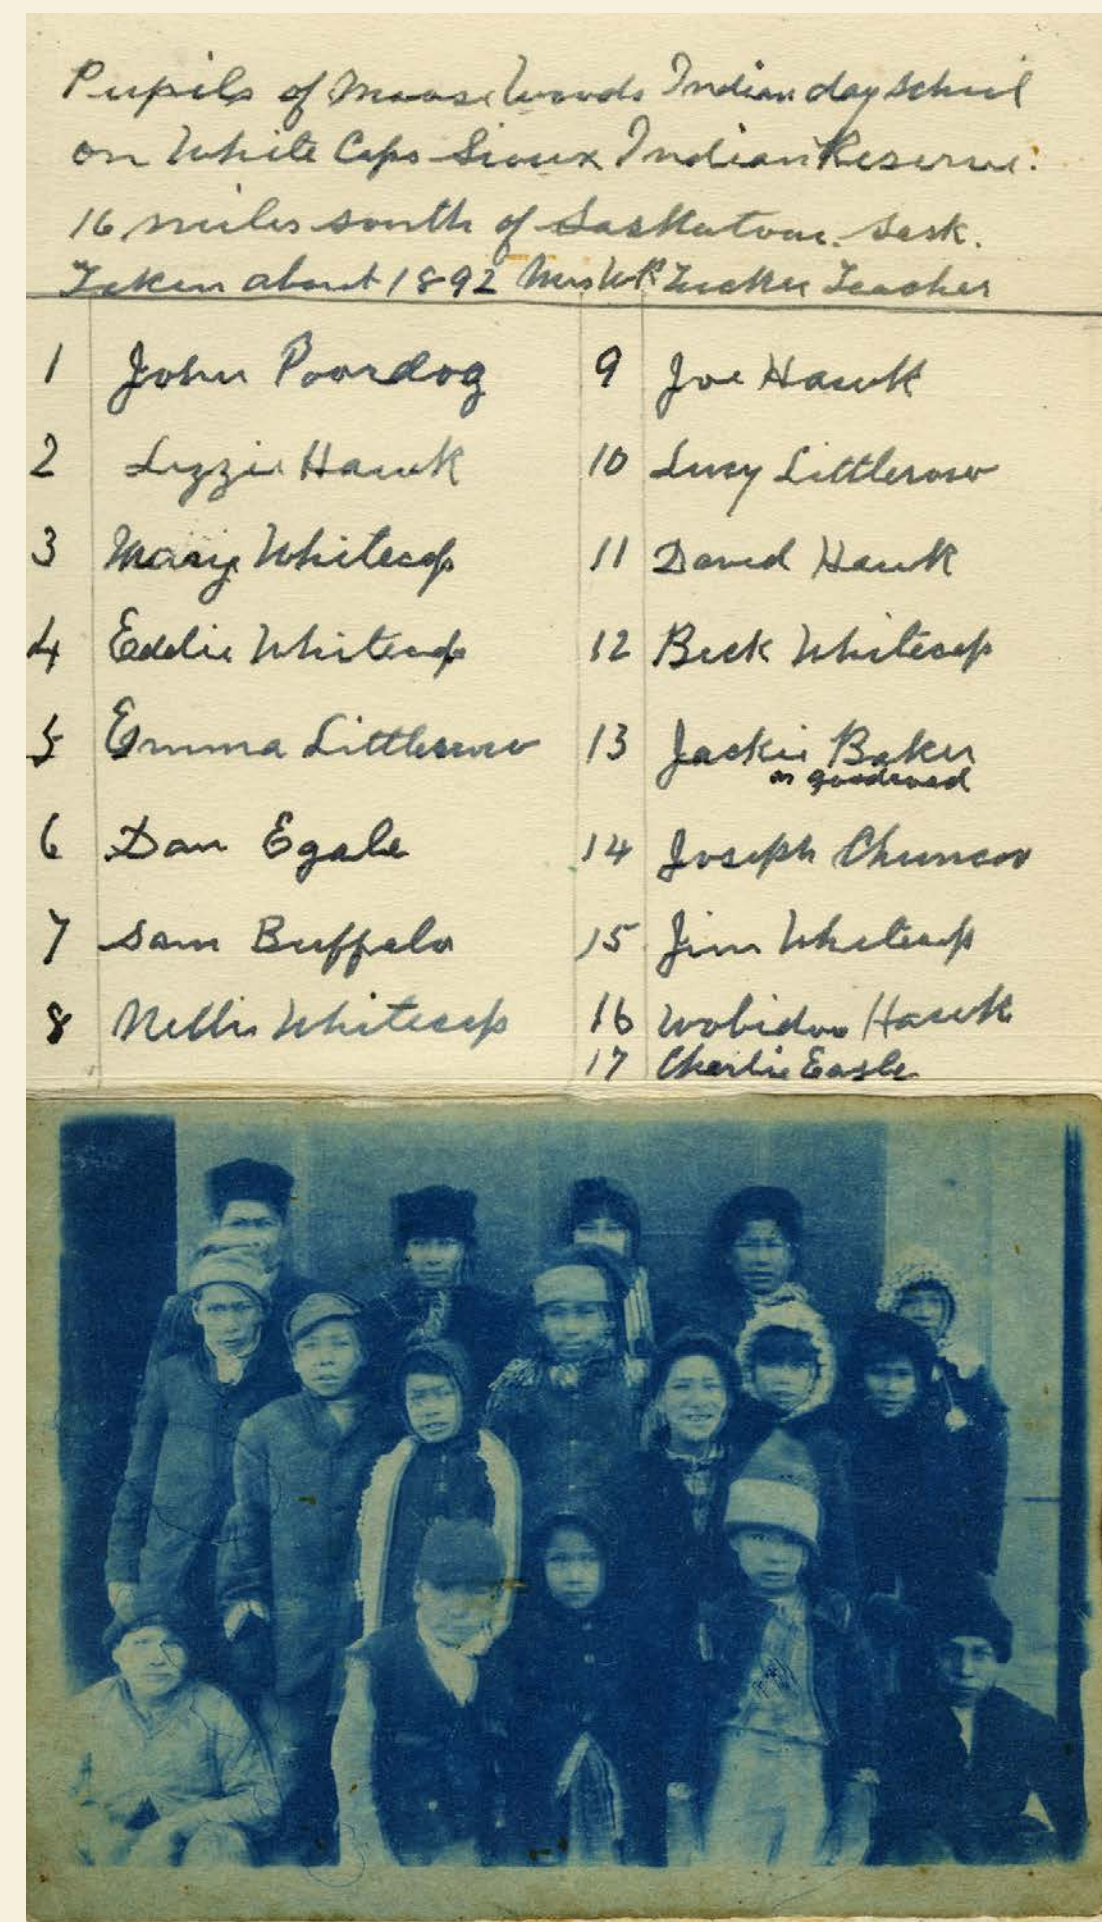 Pupils of Moose Woods Indian day school
on White Caps Sioux Indian Reserve.
16 miles south of Saskatoon. Sask.
Taken about 1892 Mrs W R Tucker Teacher
1 John Poordog
2 Lizzie Hawk
3 Mary Whitecap
4 Eddie Whitecap
5 Emma Littlecrow
6 Dan Egale
7 Sam Buffalo
8 Nellie Whitecap
9 Joe Hawk
10 Lucy Littlecrow
11 David Hawk
12 Beck Whitecap
13 Jackie Baker
or goodroad
14 Joseph
15 Jim Whitecap
16 Hawk
17 Charlie Eagle